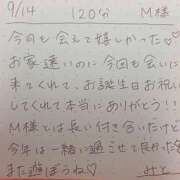 9/14 120分 M様
今回も会えて嬉しかった♡
お家遠いのに今回も会いに
来てくれて、お誕生日お祝い
してくれて本当にありがとう!!
M様とは長い付き合いだけど
今年は一緒に過せて良かった
また遊ぼうね♡